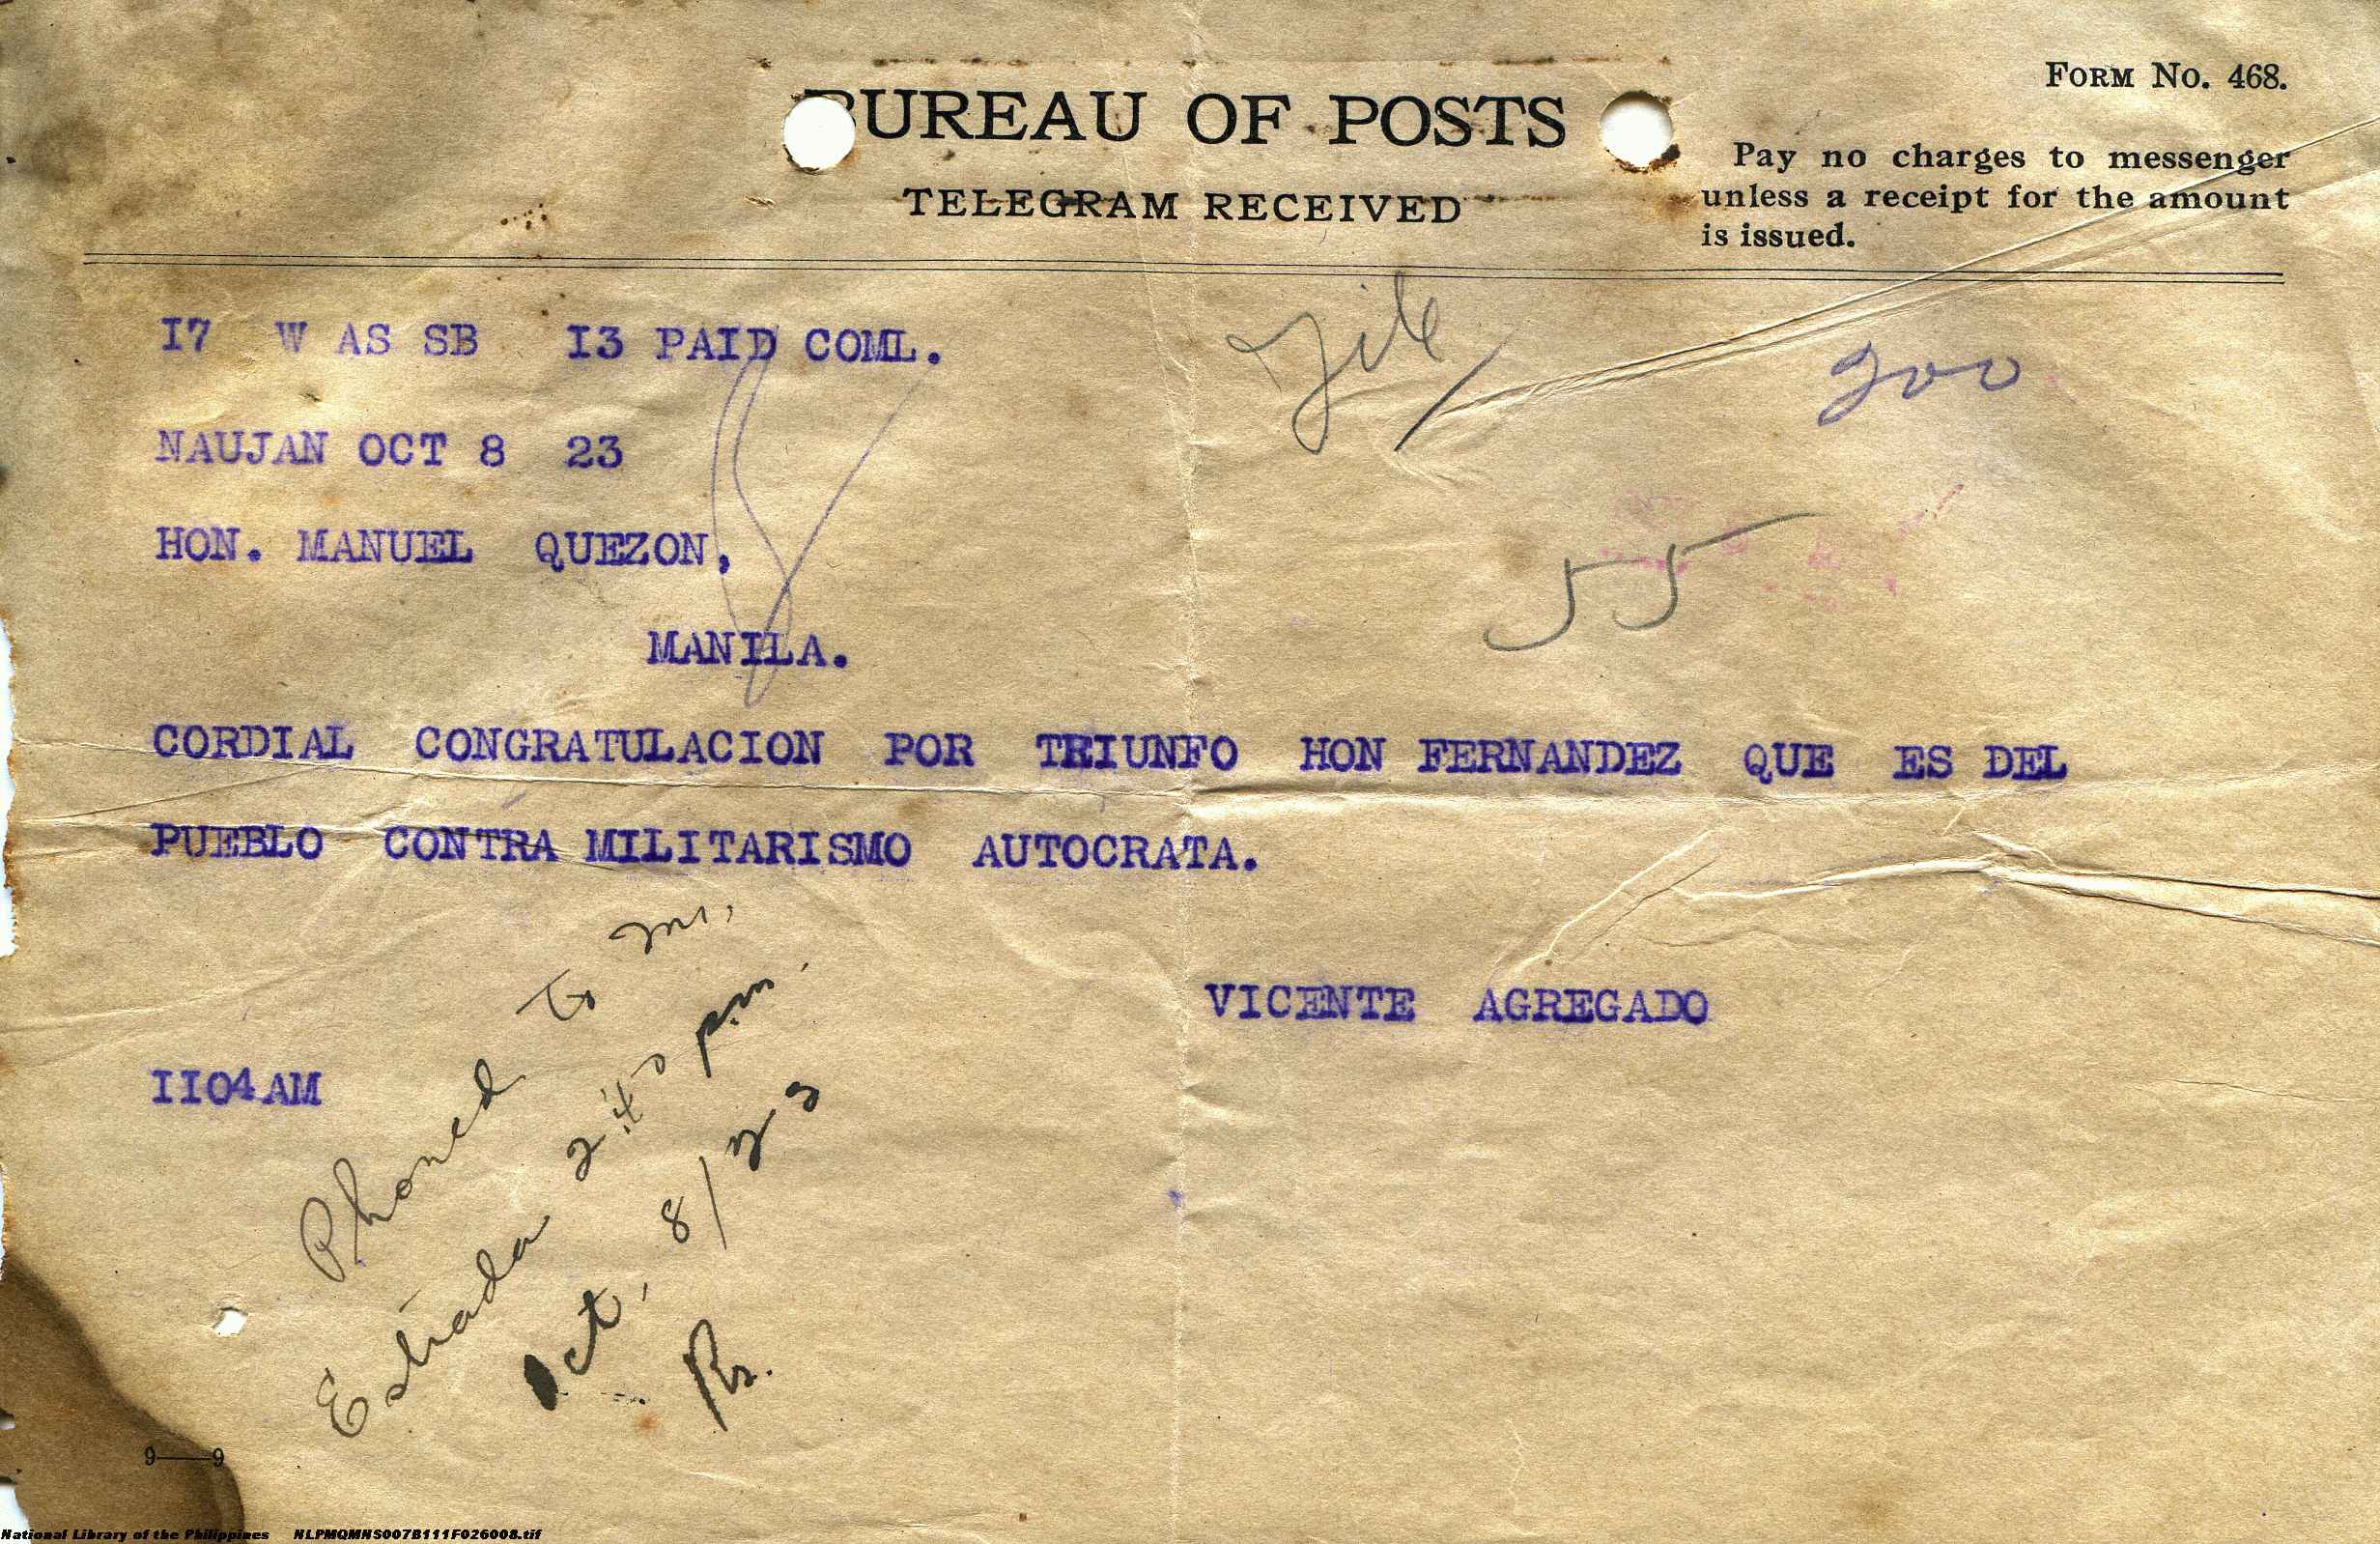 FORM NO. 468.
BUREAU OF POSTS
TELEGRAM RECEIVED
Pay no charges to messenger
unless a receipt for the amount
is issued.
I7 W AS SB I3 PAID COML.
File
200
NAUJAN OCT 8 23
HON. MANUEL QUEZON,
55
MANILA.
CORDIAL CONGRATULACION POR TRIUNFO HON FERNANDEZ QUE ES DEL
PUEBLO CONTRA MILITARISMO AUTOCRATA.
VICENTE AGREGADO
II04AM
Phoned to Mr.
Estrada 2:40 p.m.
Oct, 8/23
9—9
National Library of the Philippines NLPMQMNS007B111F026008.tif